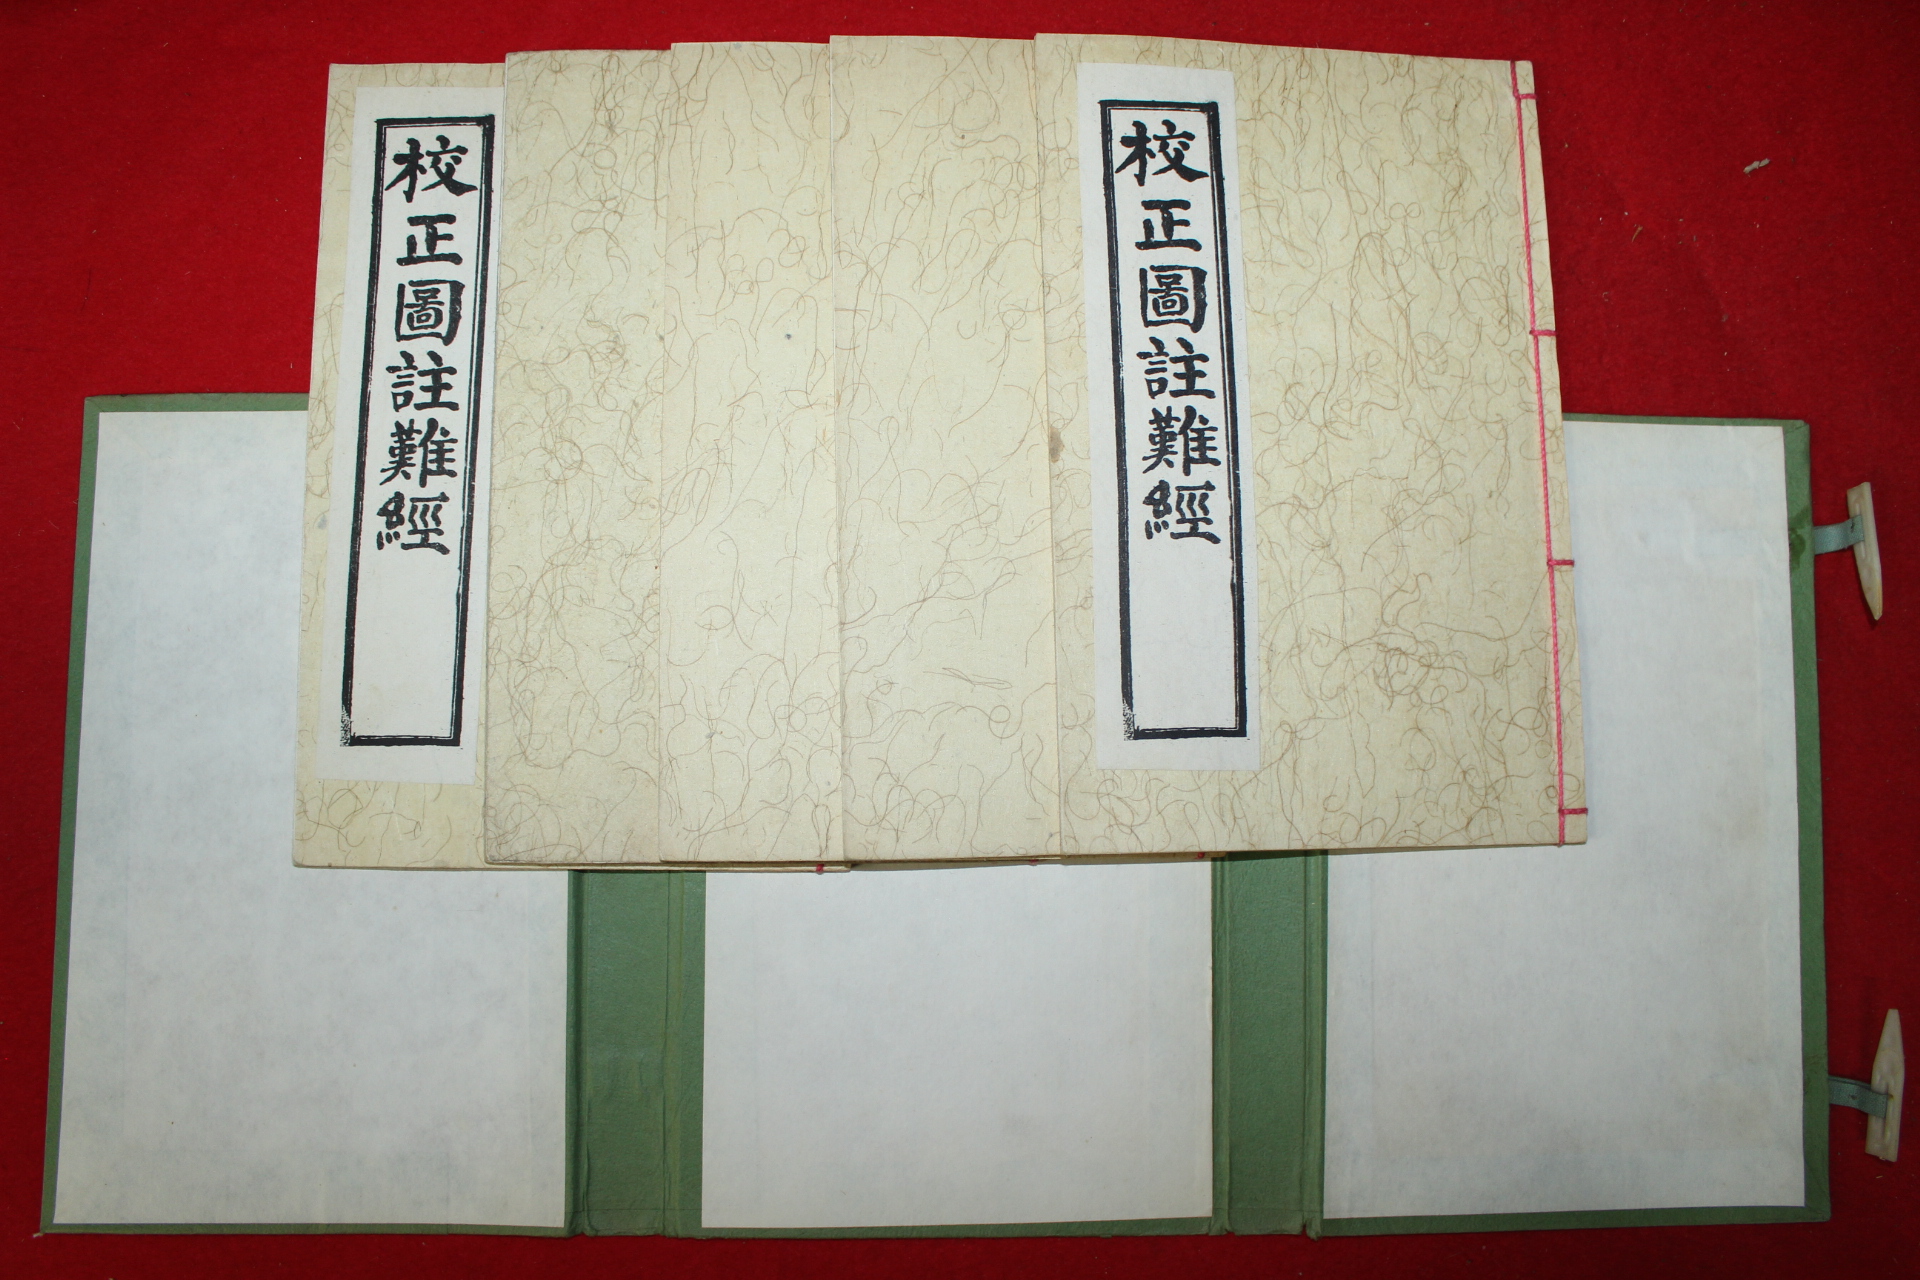 校正圖註難經
校正圖註難經